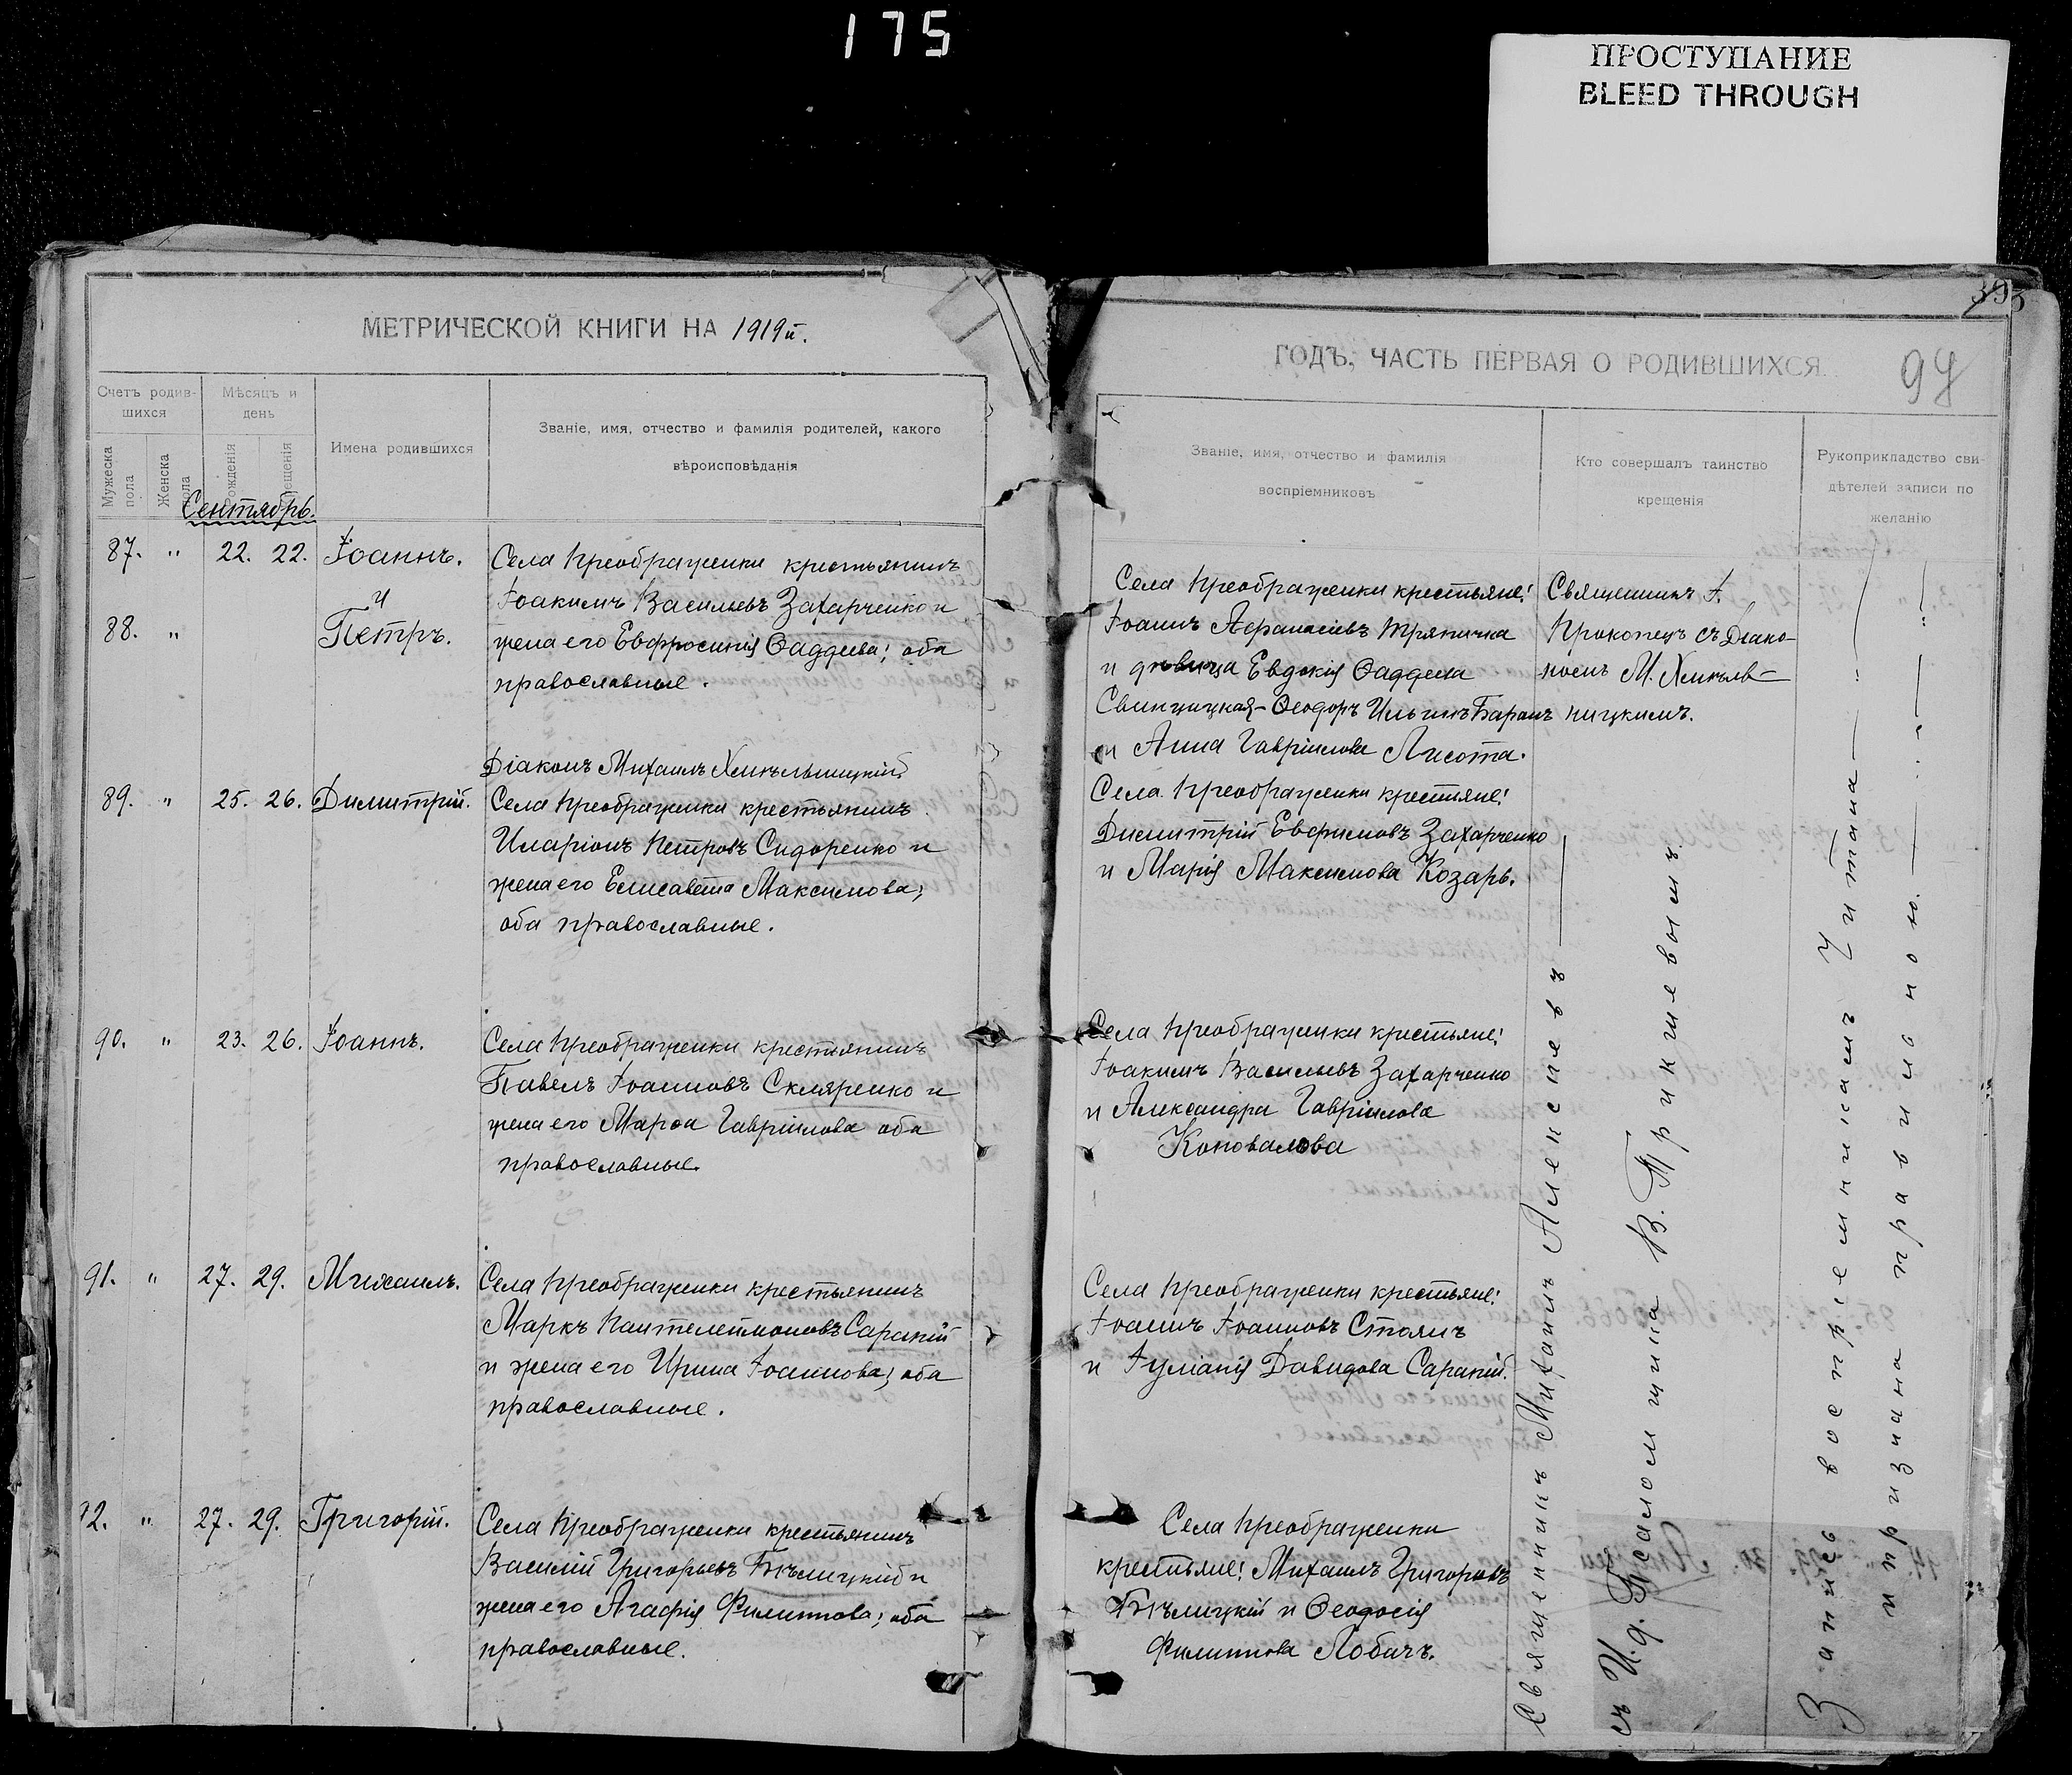 175
ПРОСТУПАНИЕ
BLEED THROUGH
МЕТРИЧЕСКОЙ КНИГИ НА 1919й.
Счетъ родив-
шихся
Мѣсяцъ и
день
Имена родившихся
Званіе, имя, отчество и фамилія родителей, какого
вѣроисповѣданія
Мужеска
пола
Женска
пола
Рожденія
Крещенія
Сентябрь.
87. " 22. 22. Іоаннъ.
Села Преображенки крестьянинъ
Іоакимъ Васильевъ Захарченко и
и
88. " Петръ.
жена его Евфросинія Ѳаддеева; оба
православные.
Діаконъ Михаилъ Хмѣльницкій
89. " 25. 26. Димитрій.
Села Преображенки крестьянинъ
Иларіонъ Петровъ Сидоренко и
жена его Елисавета Максимова;
оба православные.
90. " 23. 26. Іоаннъ.
Села Преображенки крестьянинъ
Павелъ Іоанновъ Скляренко и
жена его Марѳа Гавріилова оба
православные.
91. " 27. 29. Михаилъ.
Села Преображенки крестьянинъ
Маркъ Пантелеймоновъ Сараній
и жена его Ирина Іоаннова; оба
православные.
92. " 27. 29. Григорій.
Села Преображенки крестьянинъ
Василій Григорьевъ Бѣлицкій и
жена его Агафія Филиппова; оба
православные.
393
ГОДЪ, ЧАСТЬ ПЕРВАЯ О РОДИВШИХСЯ.
98
Званіе, имя, отчество и фамилія
воспріемниковъ
Кто совершалъ таинство
крещенія
Рукоприкладство сви-
дѣтелей записи по
желанію
Села Преображенки крестьяне:
Іоаннъ Аѳанасіевъ Тряпичка
и дѣвица Евдокія Ѳаддеева
Свинцицкая - Ѳеодоръ Ильинъ Баранъ
и Анна Гавріилова Лисота.
Священникъ А.
Прокопецъ съ Діако-
номъ М. Хмѣль-
ницкимъ.
Села Преображенки крестьяне:
Димитрій Евфимовъ Захарченко
и Марія Максимова Козарь.
Села Преображенки крестьяне:
Іоакимъ Васильевъ Захарченко
и Александра Гавріилова
Коновалова
Села Преображенки крестьяне:
Іоаннъ Іоанновъ Стоянъ
и Іуліанія Давидова Сараній.
Села Преображенки
крестьяне: Михаилъ Григорьевъ
Бѣлицкій и Ѳеодосія
Филиппова Лобачъ.
Священникъ Михаилъ Алексѣевъ
съ И. д. Псаломщика В. Трикишевымъ.
Запись воспріемникамъ читана
и признана правильною.